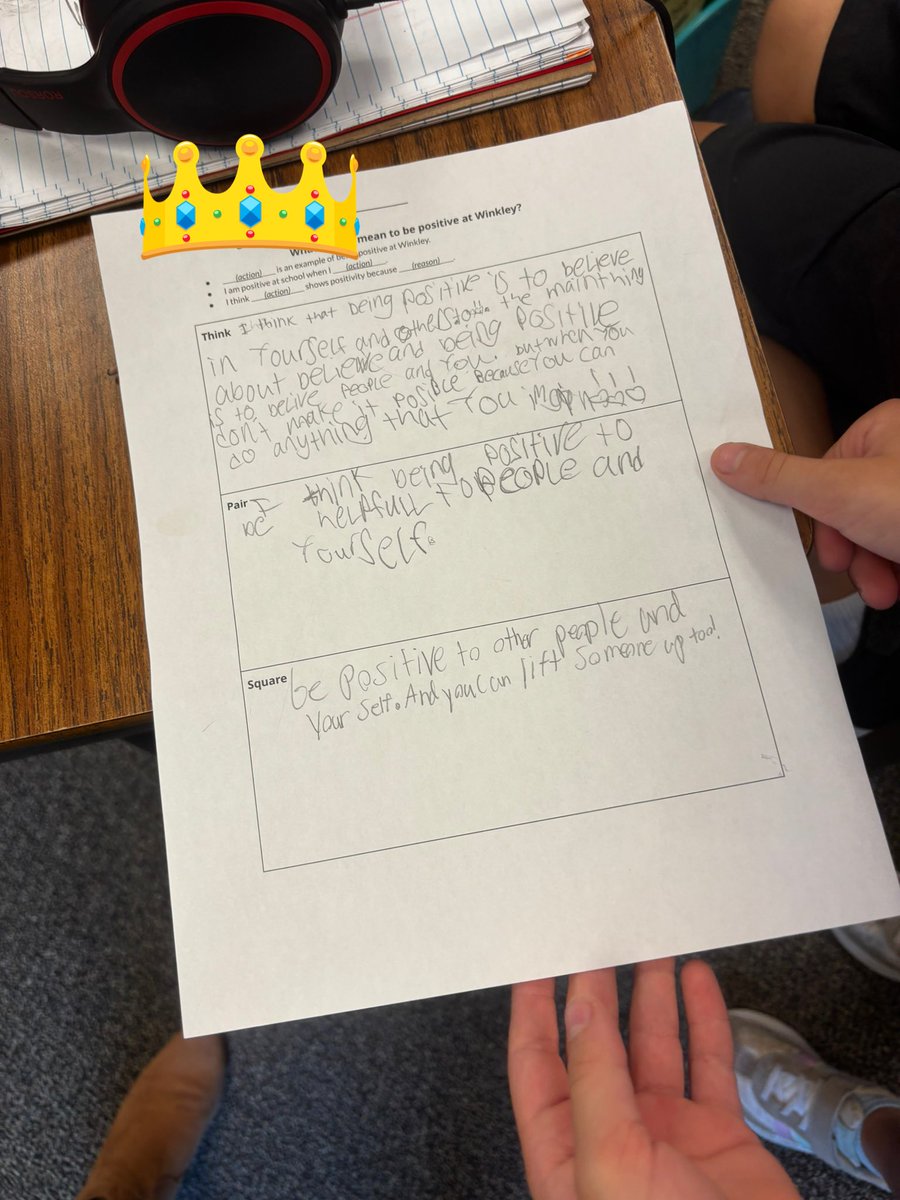 mean to be positive at Winkley?
(action) is an example of positive at Winkley.
I am positive at school when I (action).
I think (action) shows positivity because (reason).
Think I think that being positive is to believe
in Yourself and the mainthing
about believe and being Positive
is to belive people and You. but when You
don't make it posible because You can
do anything that You !!!
Pair I think being positive to
be helpfull to people and
Yourself.
Square be positive to other people and
Your self. And you can lift someone up too!